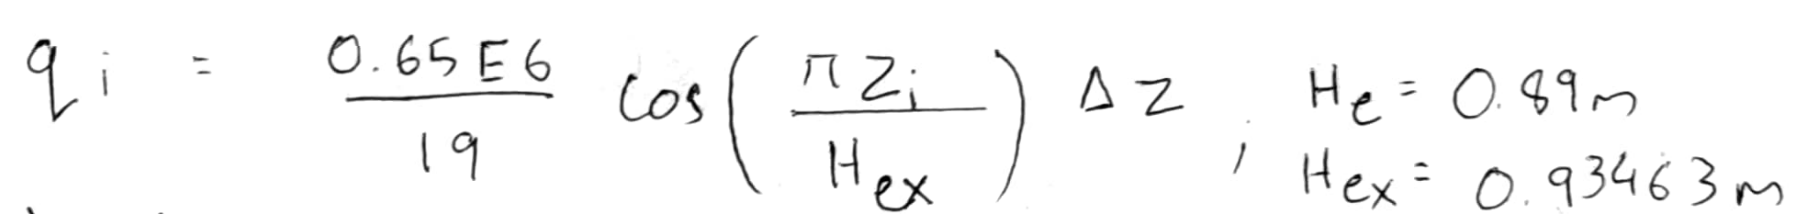 qi = 0.65E6 / 19 cos(π Zi / Hex) Δz , He = 0.89m
Hex = 0.93463m